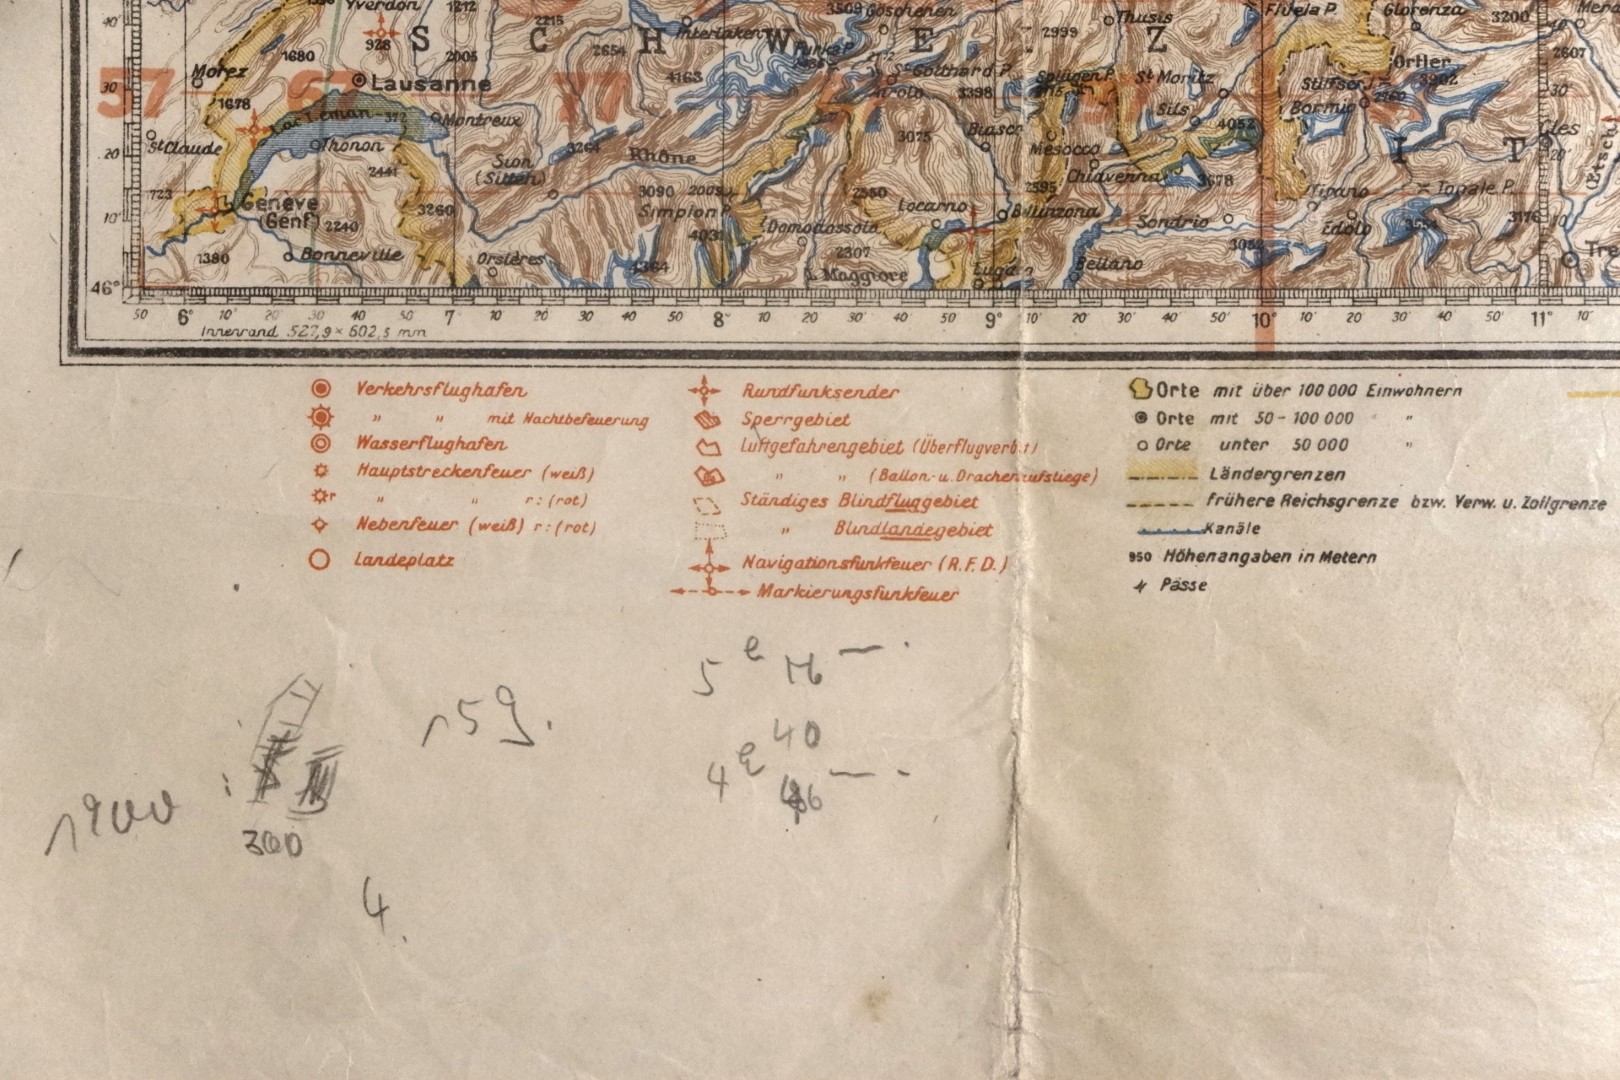 40'
Yverdon
1212
2215
3509 Göschenen
Thusis
Flüela P.
Glorenza
3200
40'
928
S C H W E Z
1680
2005
2654
Interlaken
Furka P.
2999
2607
Ortler
57 67 77
30'
Morez
Lausanne
4163
St Gotthard P.
Splügen P.
St Moritz
Stilfser
3902
30'
1678
3398
Sils
Bormio
2760
Lac Leman - 372
Montreux
3075
Biasca
4052
Cles
St Claude
Thonon
3264
Rhône
Mesocco
I T
20'
20'
2441
Sion
(Sitten)
Chiavenna
3678
Etsch
723
3090
2009
2550
2595
Tirano
Tonale P.
Genève
(Genf)
3260
Simplon P.
Locarno
Bellinzona
Sondrio
3554
3176
10'
10'
2240
4031
Domodossola
Edolo
1380
Bonneville
Orsières
4364
2307
L. Maggiore
Bellano
3052
46°
50' 6° 10' 20' 30' 40' 50' 7 10' 20' 30' 40' 50' 8° 10' 20' 30' 40' 50' 9° 10' 20' 30' 40' 50' 10° 10' 20' 30' 40' 50' 11° 10'
Innenrand 527,9 × 602,5 mm
Verkehrsflughafen
" " mit Nachtbefeuerung
Wasserflughafen
Hauptstreckenfeuer (weiß)
r " " r: (rot)
Nebenfeuer (weiß) r: (rot)
Landeplatz
Rundfunksender
Sperrgebiet
Luftgefahrengebiet (Überflugverbot)
" " (Ballon- u. Drachenaufstiege)
Ständiges Blindfluggebiet
" Blindlandegebiet
Navigationsfunkfeuer (R.F.D.)
Markierungsfunkfeuer
Orte mit über 100 000 Einwohnern
Orte mit 50 - 100 000 "
Orte unter 50 000 "
Ländergrenzen
frühere Reichsgrenze bzw. Verw. u. Zollgrenze
Kanäle
950 Höhenangaben in Metern
Pässe
5 e 16 —.
159.
40
4 e 46 — -
1900 :
300
4.